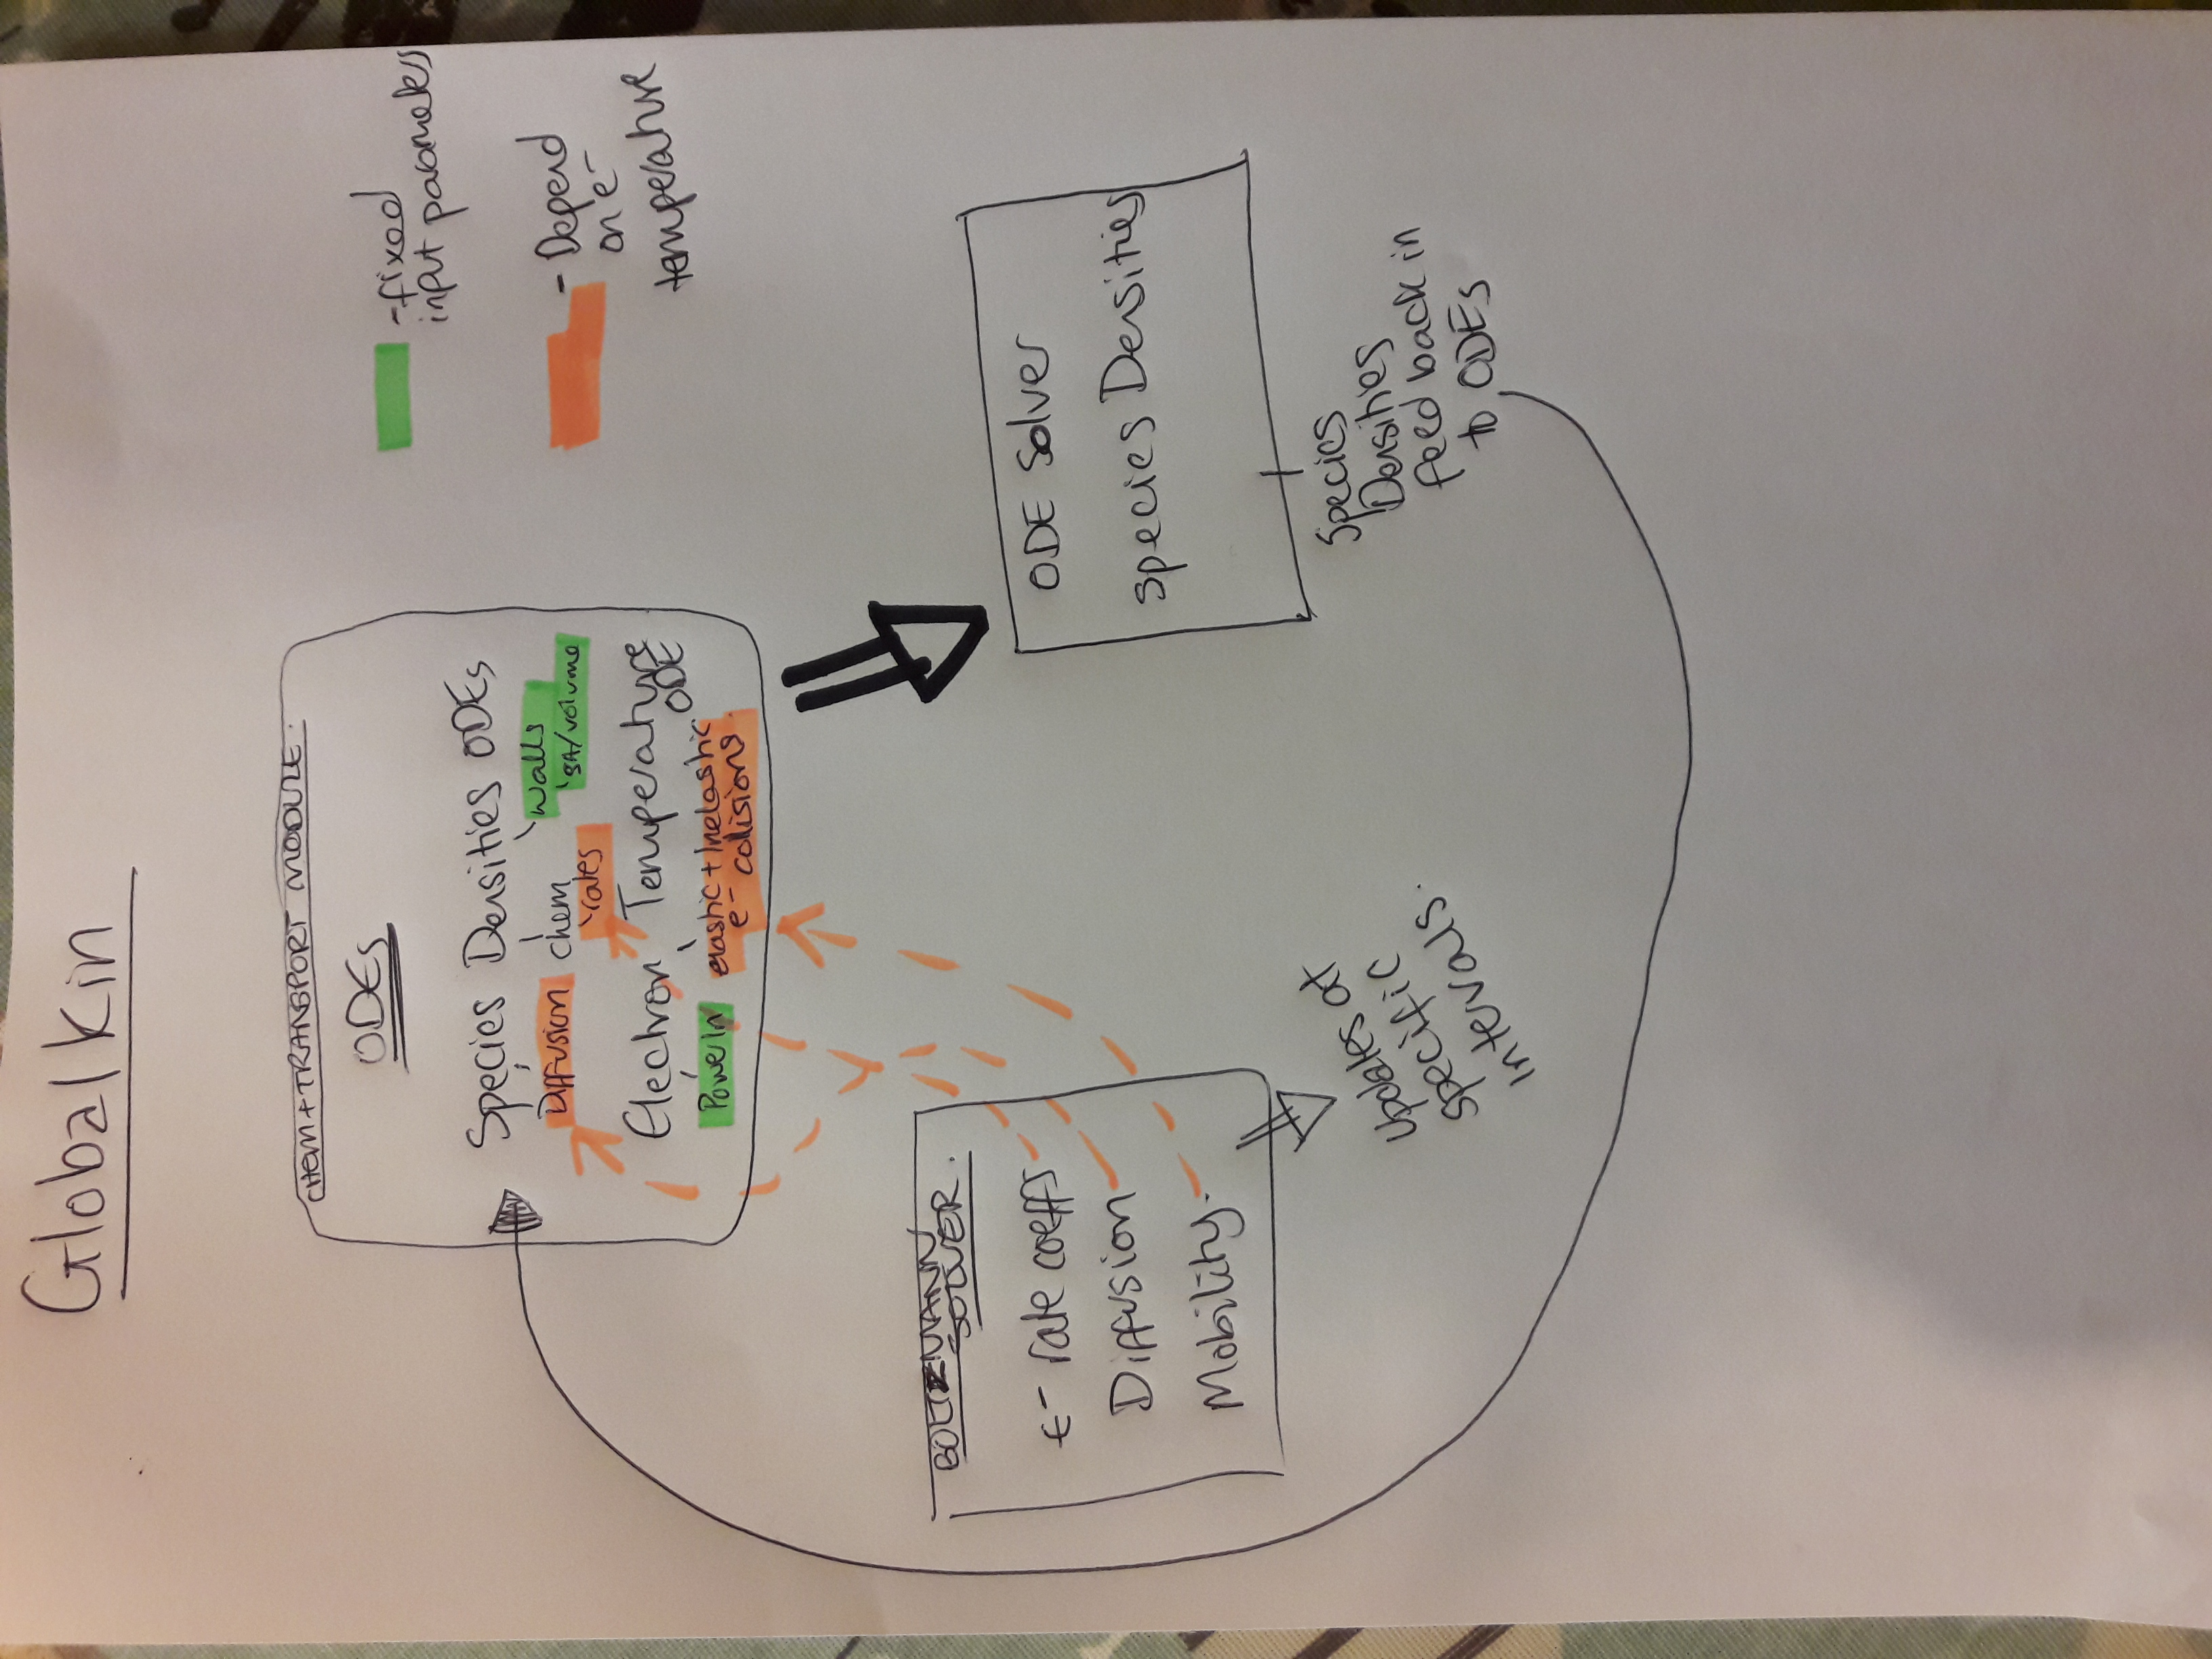 Global Kin
CHEM + TRANSPORT MODULE.
ODEs
Species Densities ODEs
Diffusion chem walls
rates SA/volume
Electron Temperature
ODE
Power In elastic + Inelastic
e- collisions
-fixed
input parameters
- Depend
on e-
temperature
BOLTZMANN
SOLVER.
e- rate coeffs
Diffusion
Mobility.
updates at
specific
intervals.
ODE Solver
species Densities
Species
Densities
feed back in
to ODEs